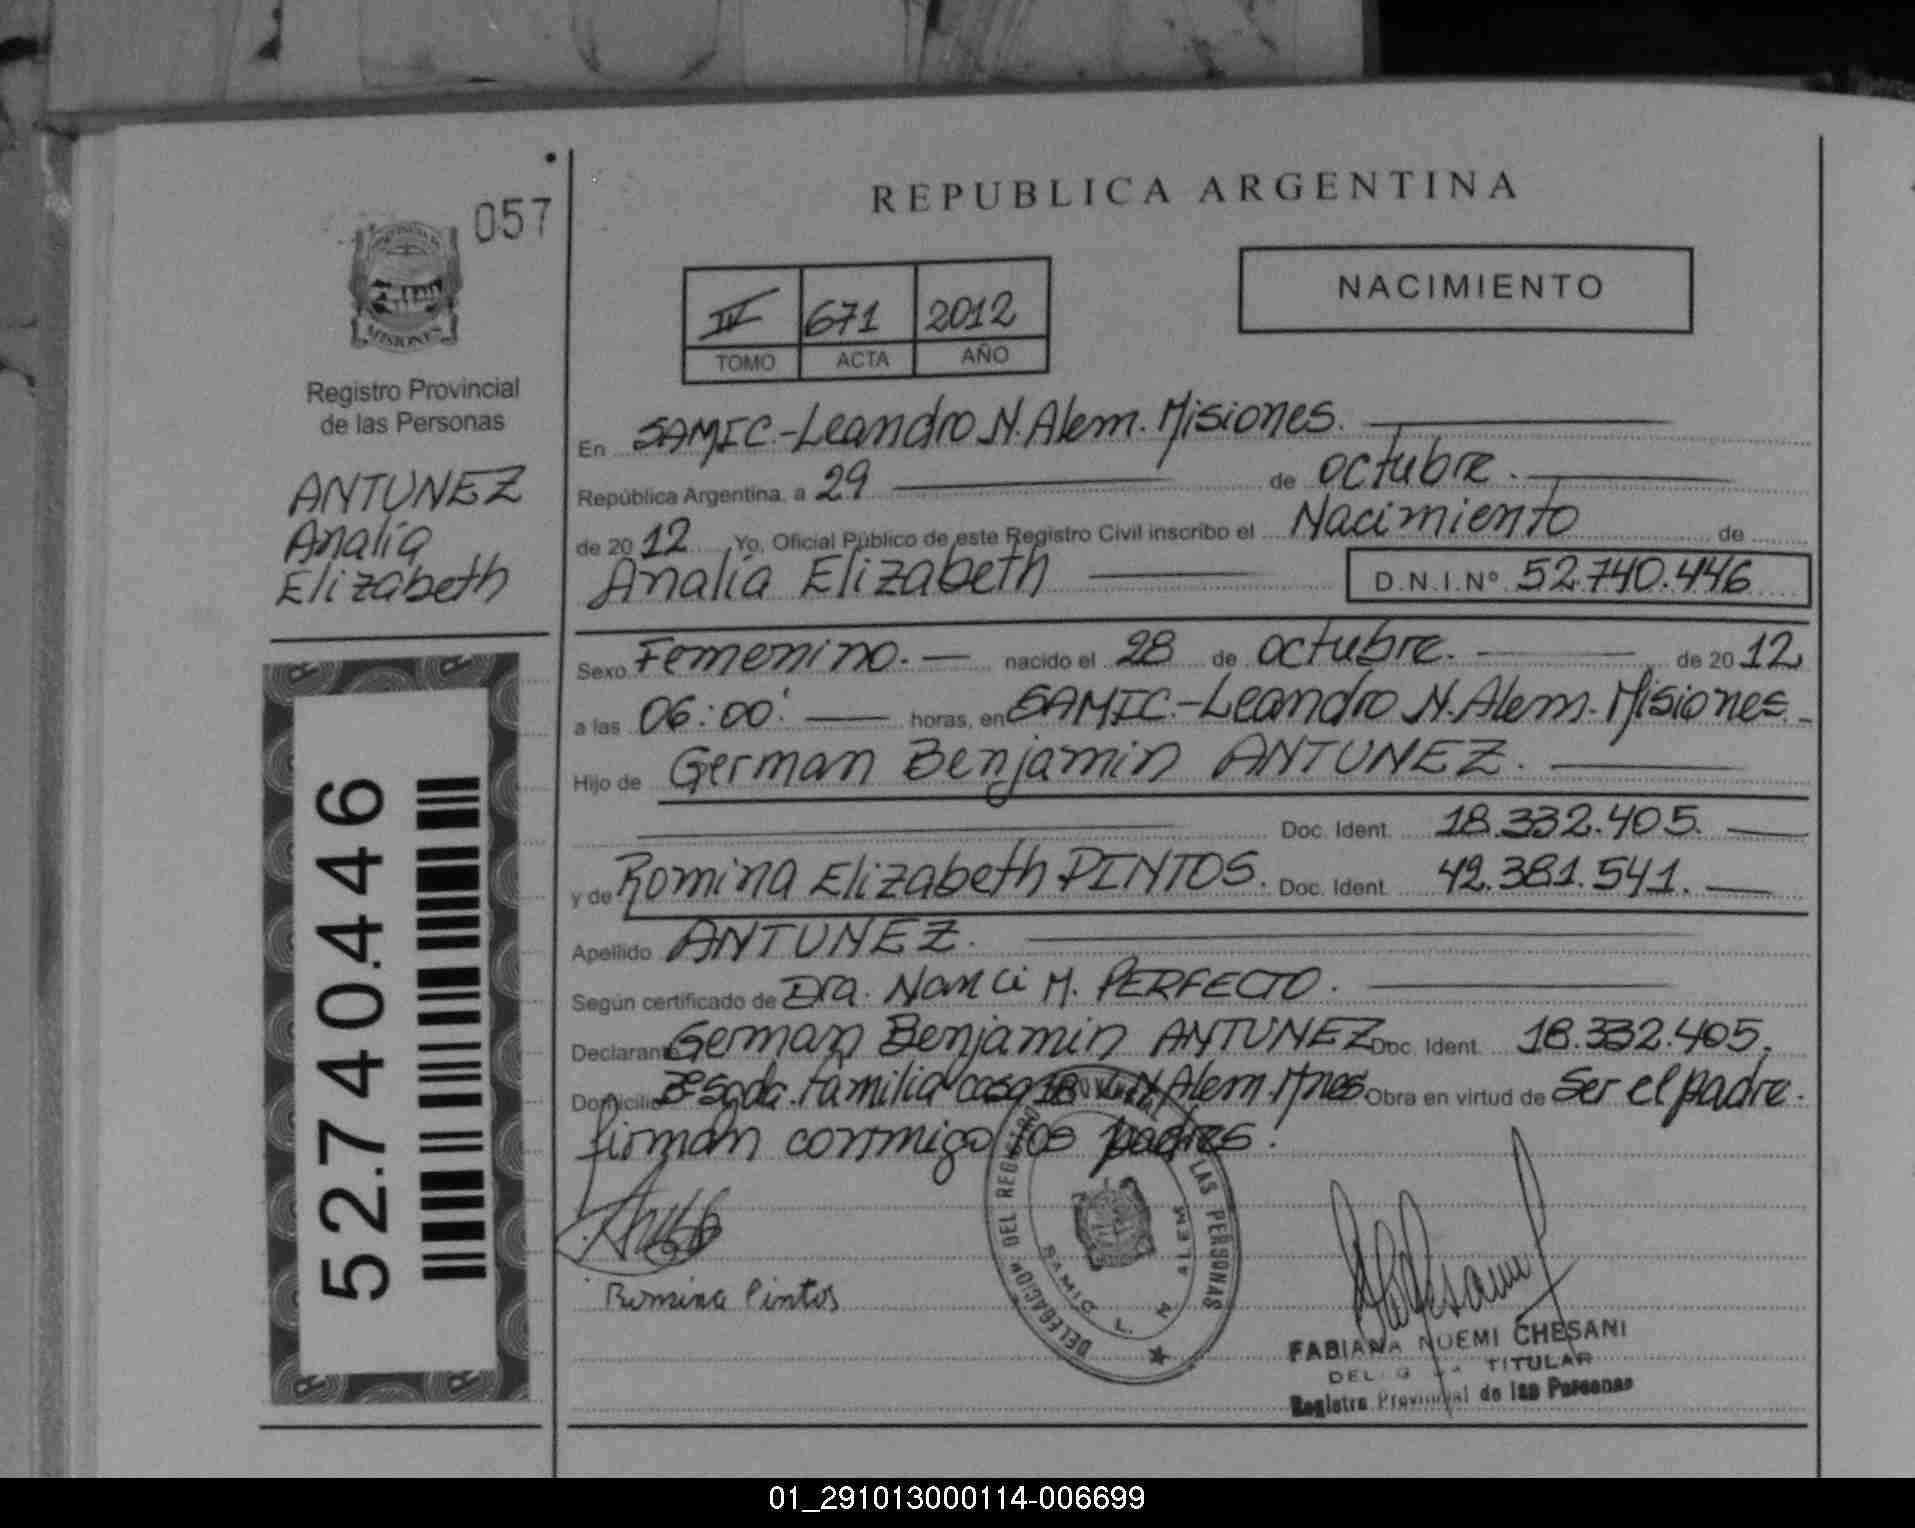 057
REPUBLICA ARGENTINA
MISIONES
Registro Provincial
de las Personas
ANTUNEZ
Analía
Elizabeth
52.740.446
671 2012
TOMO ACTA AÑO
NACIMIENTO
En SAMIC.-Leandro N. Alem. Misiones.
República Argentina, a 29 de octubre.
de 2012 Yo, Oficial Público de este Registro Civil inscribo el Nacimiento de
Analía Elizabeth D.N.I.Nº 52.740.446
Sexo Femenino. nacido el 28 de octubre. de 2012
a las 06:00' horas, en SAMIC.-Leandro N. Alem. Misiones
Hijo de German Benjamin ANTUNEZ.
Doc. Ident. 18.332.405.
y de Romina Elizabeth PINTOS. Doc. Ident. 42.381.541.
Apellido ANTUNEZ.
Según certificado de Dra. Nanci M. PERFECTO.
Declarante German Benjamin ANTUNEZ Doc. Ident. 18.332.405.
Domicilio Bº Sgda. Familia casa L N Alem. Mnes. Obra en virtud de Ser el padre.
firman conmigo los padres.
Romina Pintos
DELEGACION DEL REGISTRO LAS PERSONAS
SAMIC L. N ALEM
FABIANA NOEMI CHESANI
TITULAR
Registro Provincial de las Personas
01_291013000114-006699